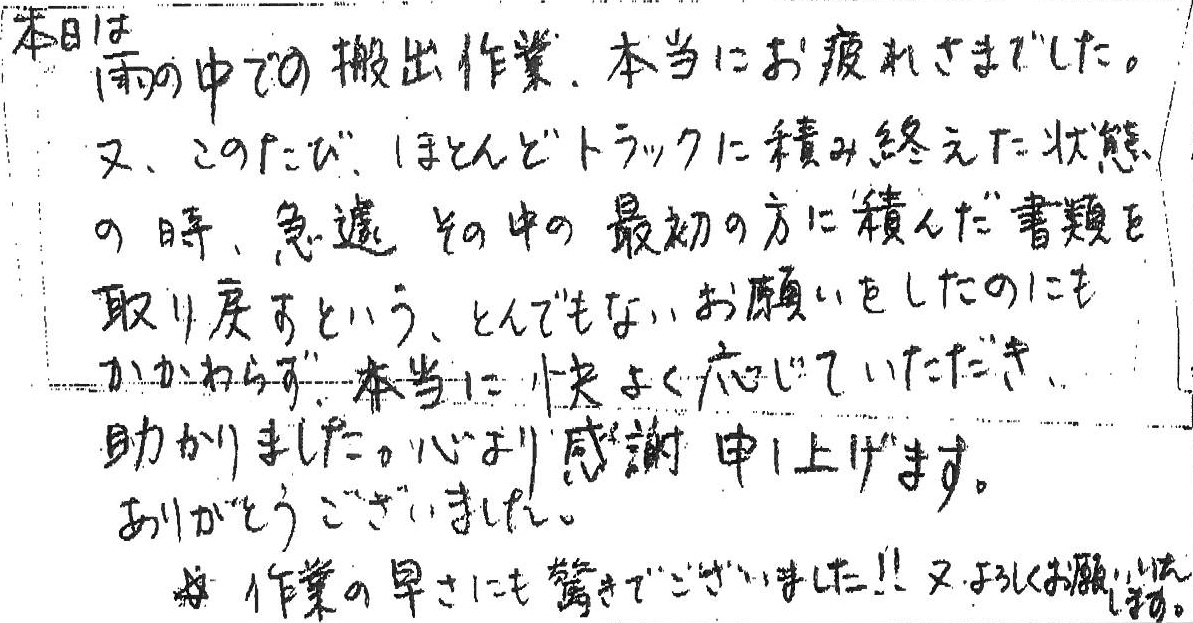 本日は
雨の中での搬出作業、本当にお疲れさまでした。
又、このたび、ほとんどトラックに積み終えた状態
の時、急遽 その中の最初の方に積んだ書類を
取り戻すという、とんでもないお願いをしたのにも
かかわらず、本当に快よく応じていただき、
助かりました。心より感謝申し上げます。
ありがとうございました。
☆ 作業の早さにも驚きでございました!! 又、よろしくお願いいたします。